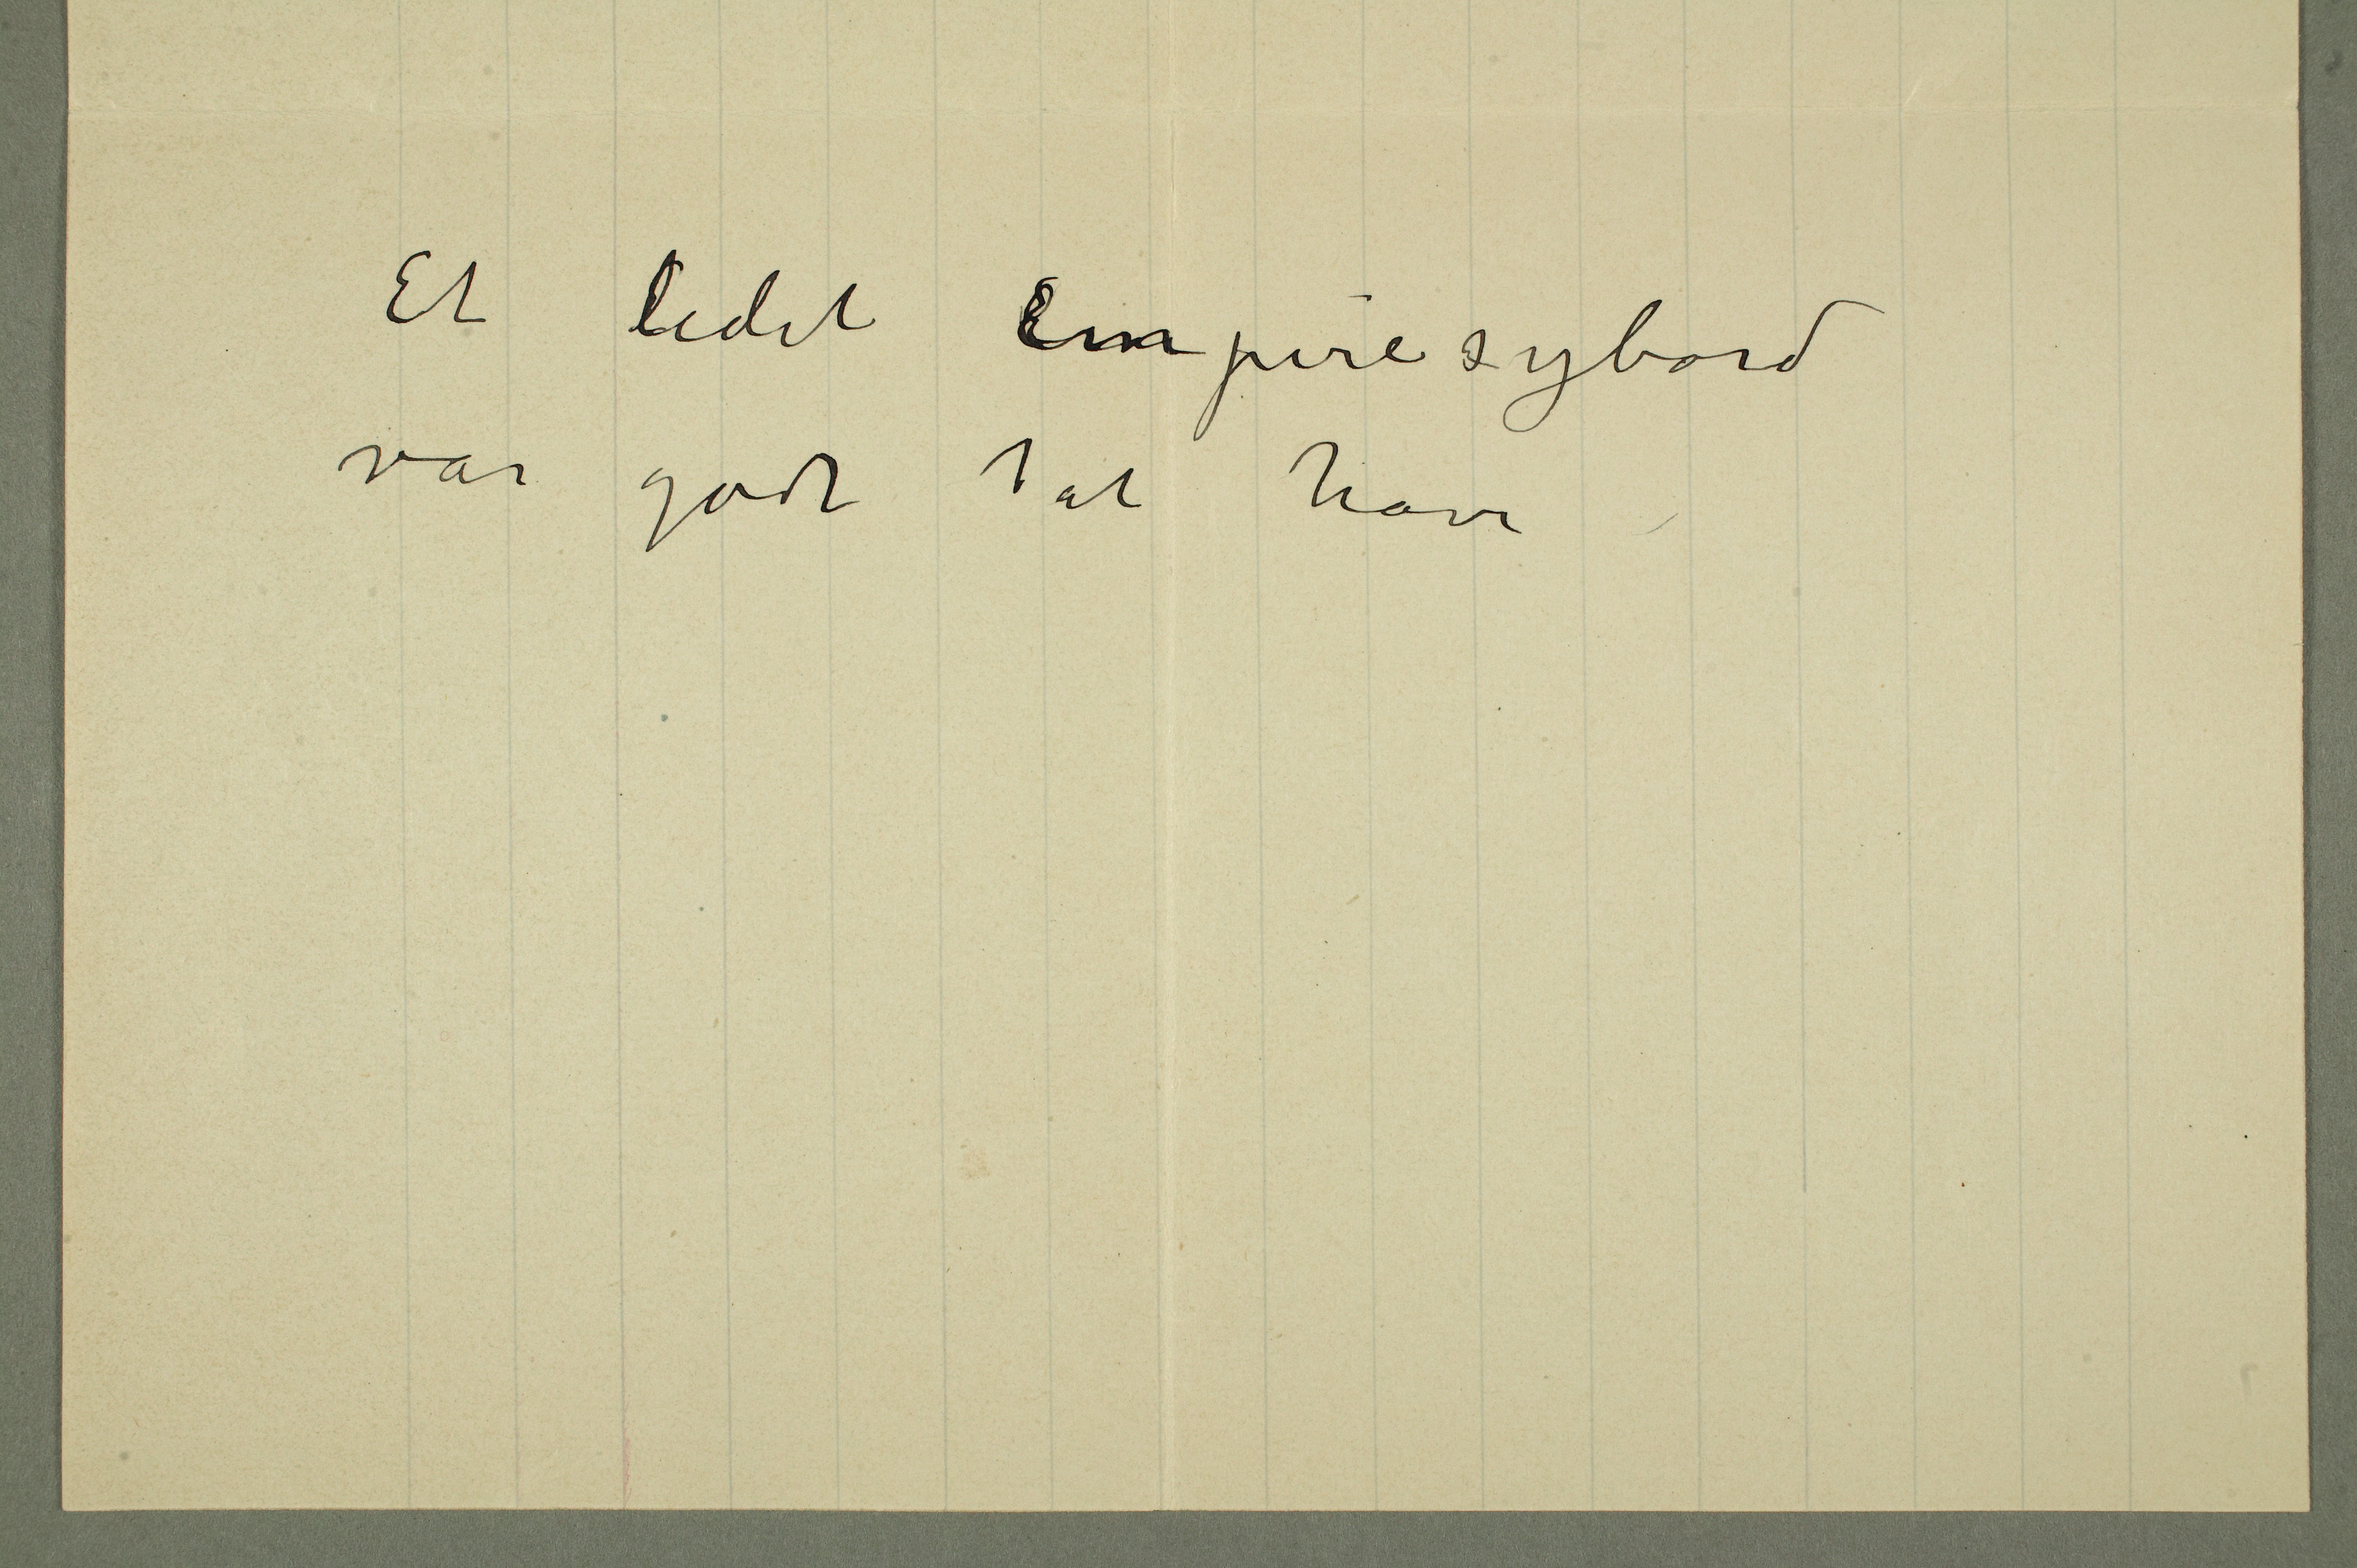 Et lidet Empire sybord
var godt at have